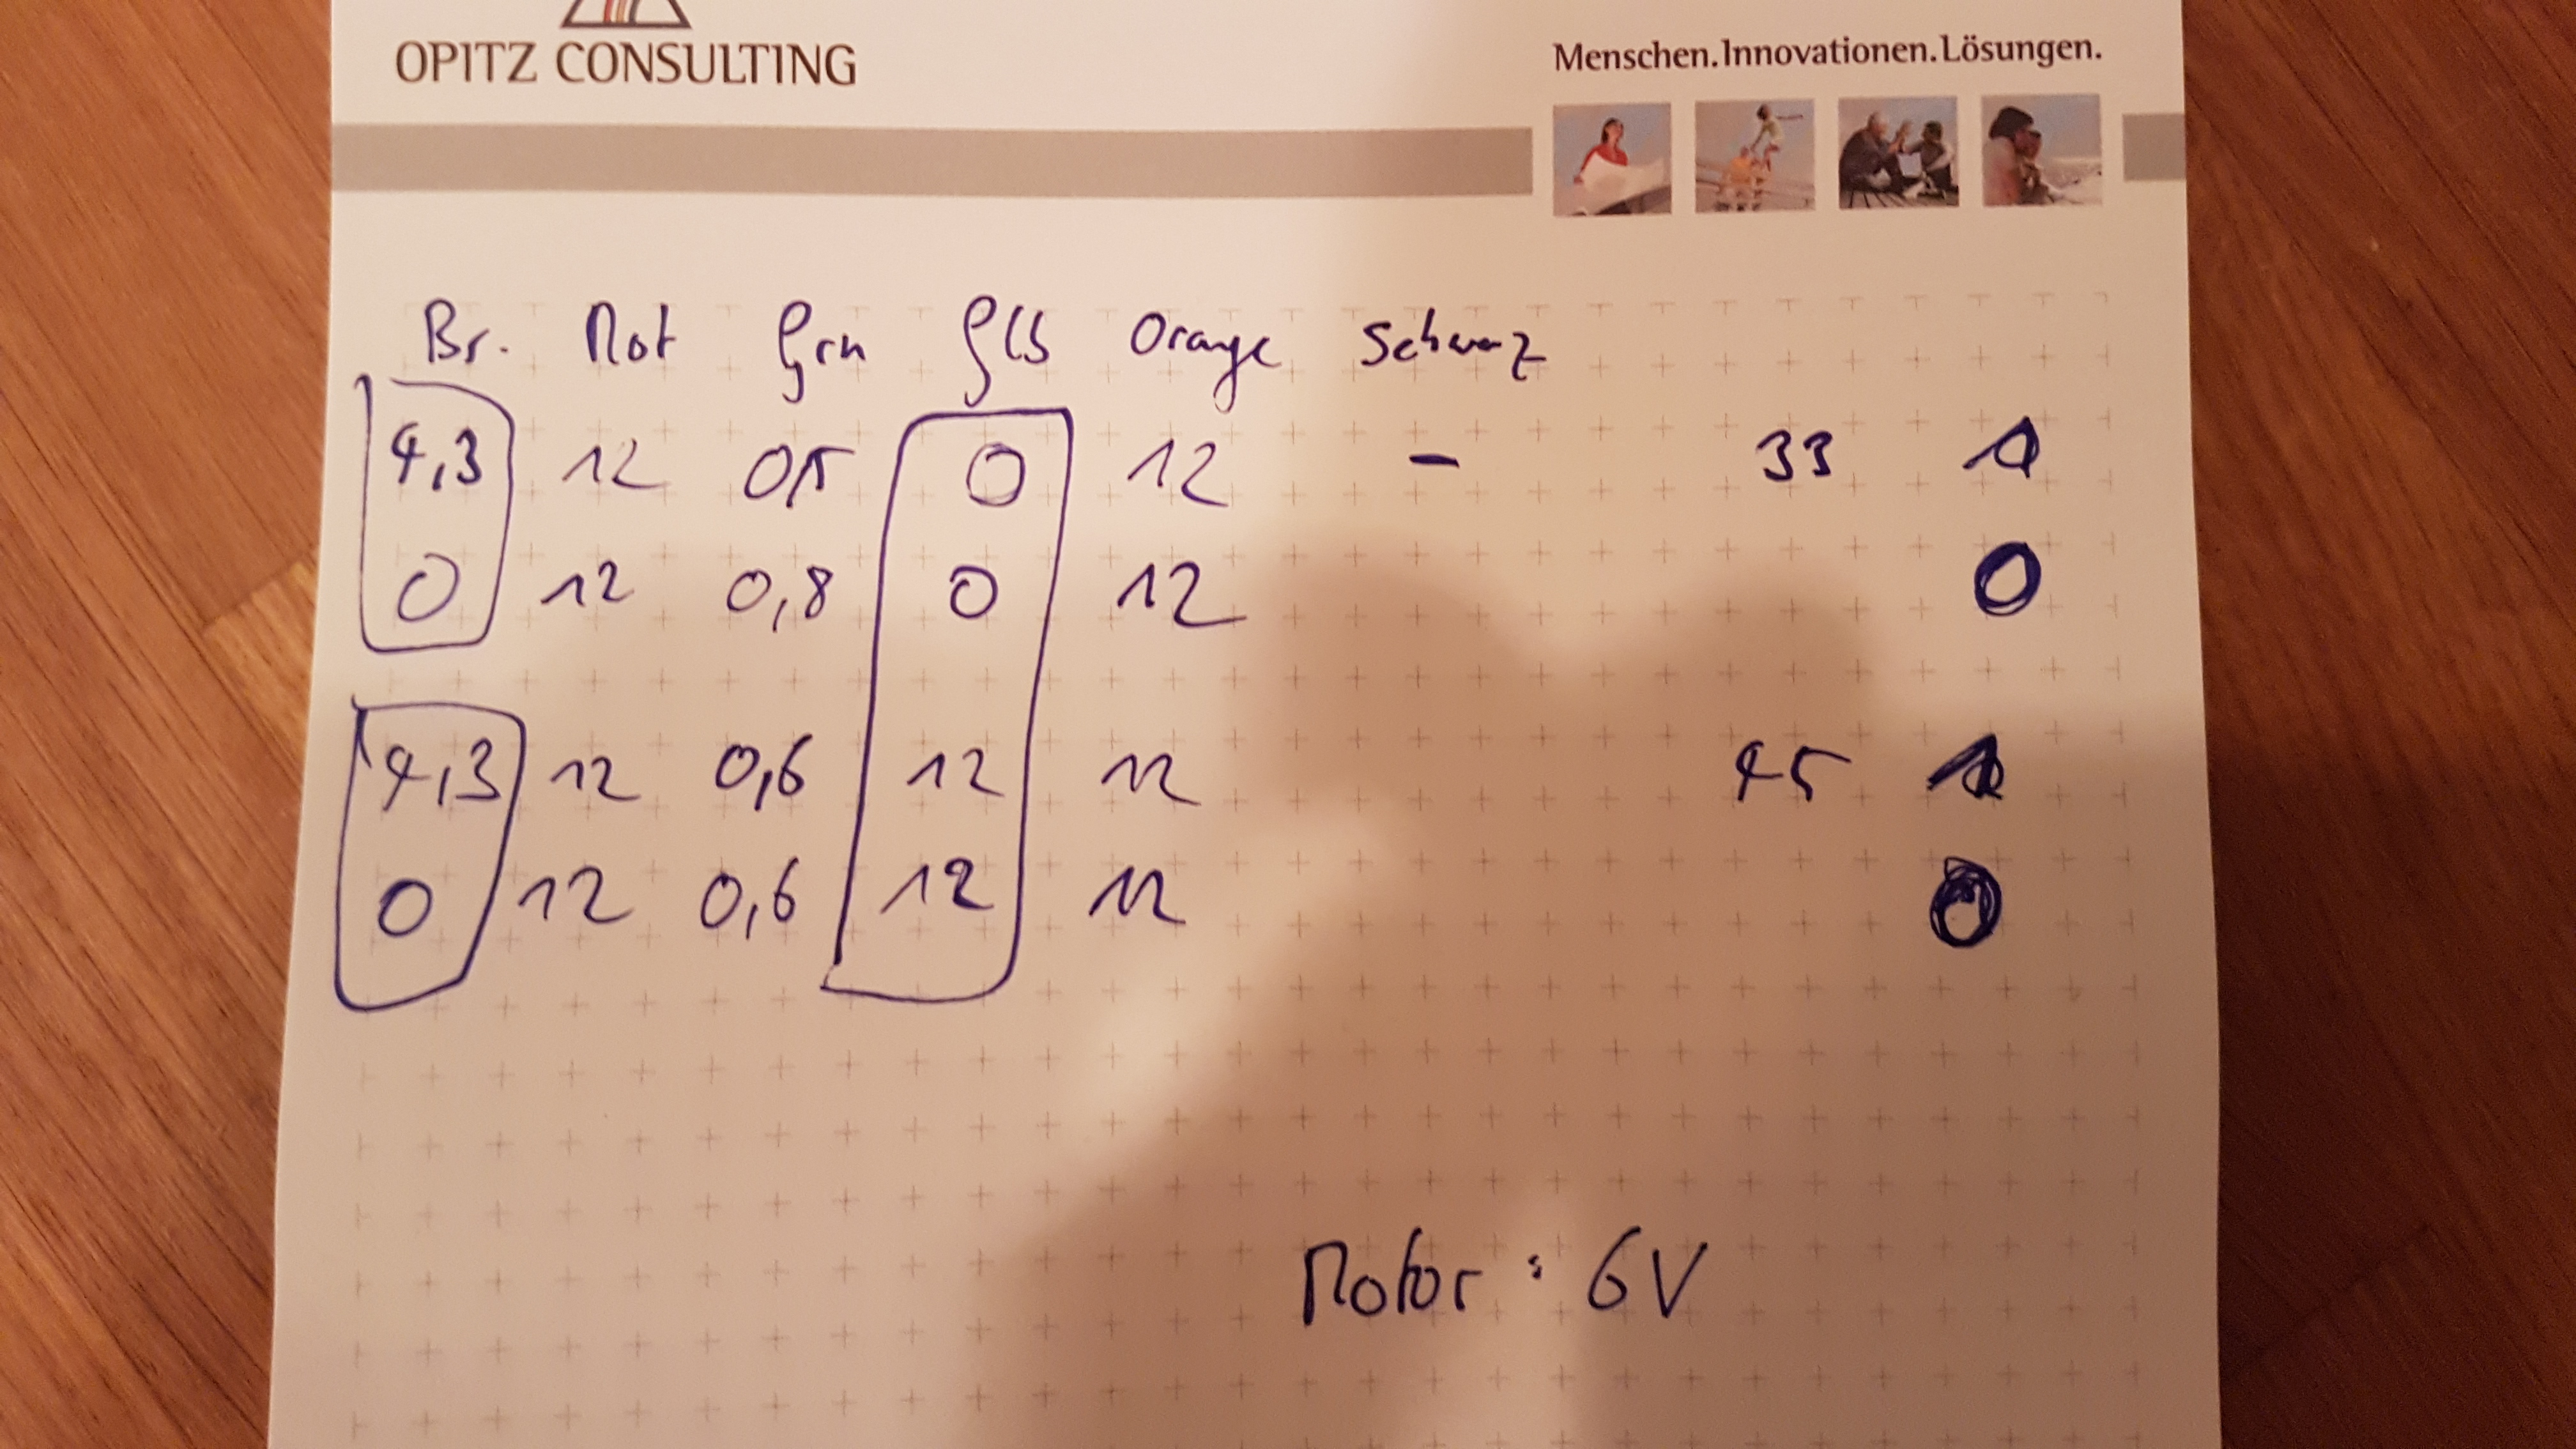 OPITZ CONSULTING Menschen.Innovationen.Lösungen.
Br. Rot Grn Glb Orange Schwarz
4,3 12 0,5 0 12 –
0 12 0,8 0 12 0
4,3 12 0,6 12 12 45
0 12 0,6 12 12 0
Motor: 6V